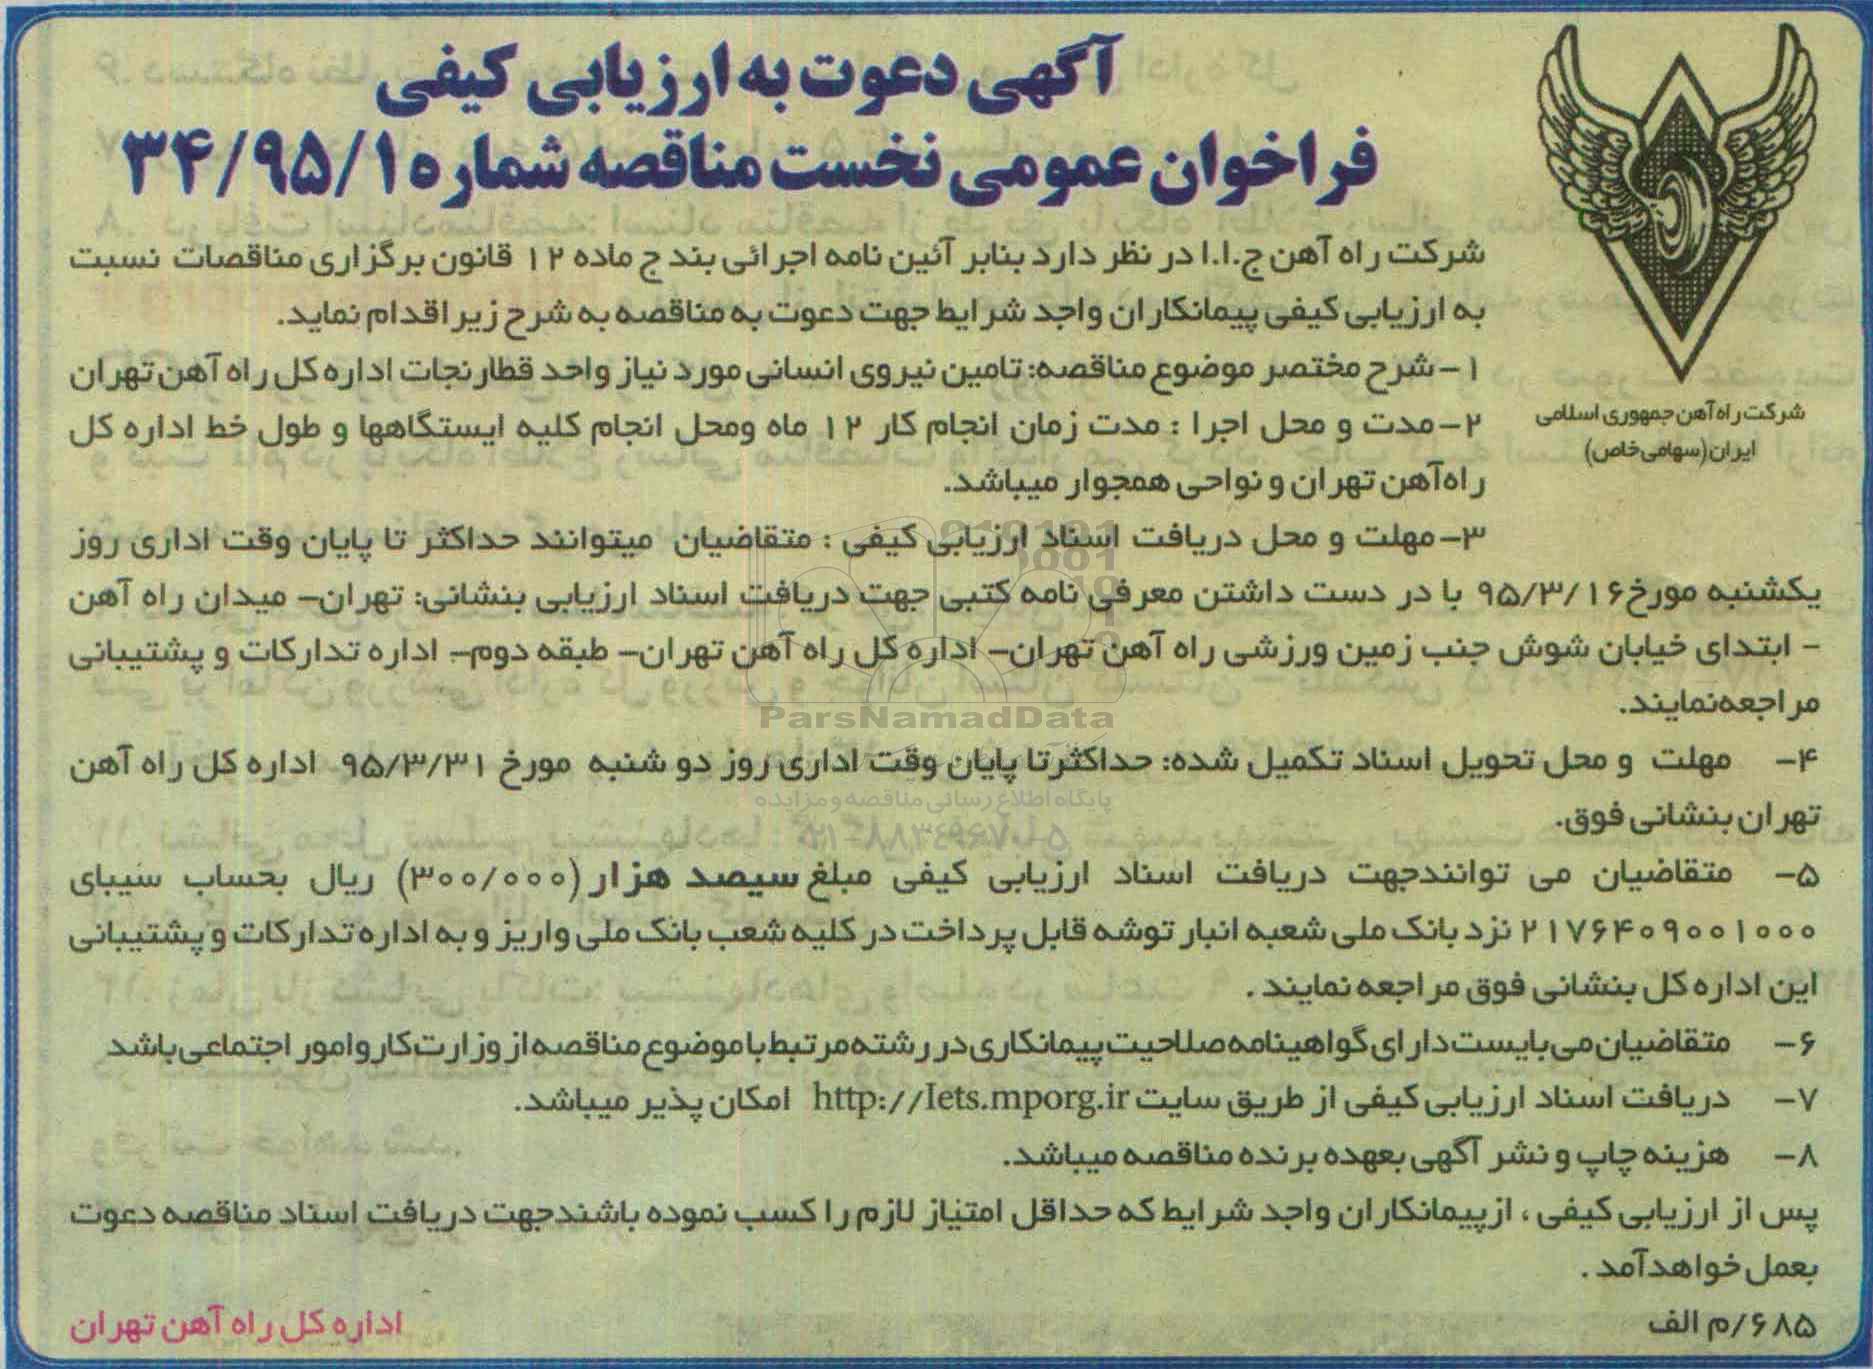 آگهی دعوت به ارزیابی کیفی
فراخوان عمومی نخست مناقصه شماره ۳۴/۹۵/۱
شرکت راه آهن جمهوری اسلامی
ایران(سهامی خاص)
شرکت راه آهن ج.ا.ا در نظر دارد بنابر آئین نامه اجرائی بند ج ماده ۱۲ قانون برگزاری مناقصات نسبت
به ارزیابی کیفی پیمانکاران واجد شرایط جهت دعوت به مناقصه به شرح زیر اقدام نماید.
۱-شرح مختصر موضوع مناقصه: تامین نیروی انسانی مورد نیاز واحد قطار نجات اداره کل راه آهن تهران
۲-مدت و محل اجرا : مدت زمان انجام کار ۱۲ ماه ومحل انجام کلیه ایستگاهها و طول خط اداره کل
راه آهن تهران و نواحی همجوار میباشد.
۳-مهلت و محل دریافت اسناد ارزیابی کیفی : متقاضیان میتوانند حداکثر تا پایان وقت اداری روز
یکشنبه مورخ ۹۵/۳/۱۶ با در دست داشتن معرفی نامه کتبی جهت دریافت اسناد ارزیابی بنشانی: تهران- میدان راه آهن
- ابتدای خیابان شوش جنب زمین ورزشی راه آهن تهران- اداره کل راه آهن تهران- طبقه دوم- اداره تدارکات و پشتیبانی
مراجعه نمایند.
۴- مهلت و محل تحویل اسناد تکمیل شده: حداکثرتا پایان وقت اداری روز دو شنبه مورخ ۹۵/۳/۳۱ اداره کل راه آهن
تهران بنشانی فوق.
۵- متقاضیان می توانندجهت دریافت اسناد ارزیابی کیفی مبلغ سیصد هزار (۳۰۰/۰۰۰) ریال بحساب سیبای
۲۱۷۶۴۰۹۰۰۱۰۰۰ نزد بانک ملی شعبه انبار توشه قابل پرداخت در کلیه شعب بانک ملی واریز و به اداره تدارکات و پشتیبانی
این اداره کل بنشانی فوق مراجعه نمایند .
۶- متقاضیان می بایست دارای گواهینامه صلاحیت پیمانکاری در رشته مرتبط با موضوع مناقصه از وزارت کار و امور اجتماعی باشد
۷- دریافت اسناد ارزیابی کیفی از طریق سایت http://Iets.mporg.ir امکان پذیر میباشد.
۸- هزینه چاپ و نشر آگهی بعهده برنده مناقصه میباشد.
پس از ارزیابی کیفی ، ازپیمانکاران واجد شرایط که حداقل امتیاز لازم را کسب نموده باشندجهت دریافت اسناد مناقصه دعوت
بعمل خواهدآمد .
۶۸۵/م الف
اداره کل راه آهن تهران
ParsNamadData
پایگاه اطلاع رسانی مناقصه و مزایده
۰۲۱-۸۸۳۴۹۶۷۰-۵